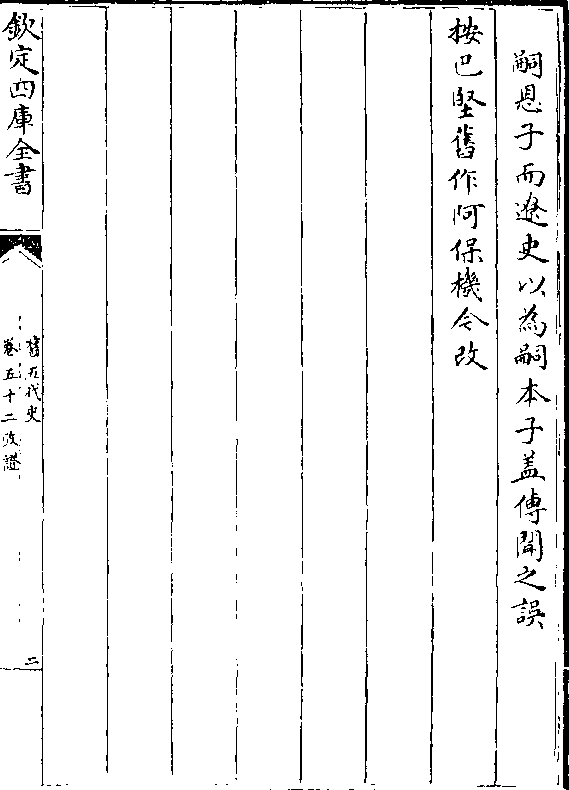 嗣恩子而遼史以為嗣本子盖傳聞之誤
按巴堅舊作阿保機今改
欽定四庫全書
舊五代史
卷五十二攷證
二